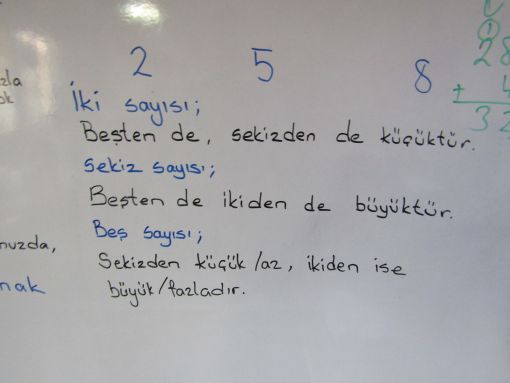 2 5 8
İki sayısı;
Beşten de, sekizden de küçüktür.
Sekiz sayısı;
Beşten de ikiden de büyüktür.
Beş sayısı;
Sekizden küçük/az, ikiden ise
büyük/fazladır.
28
+ 4
32